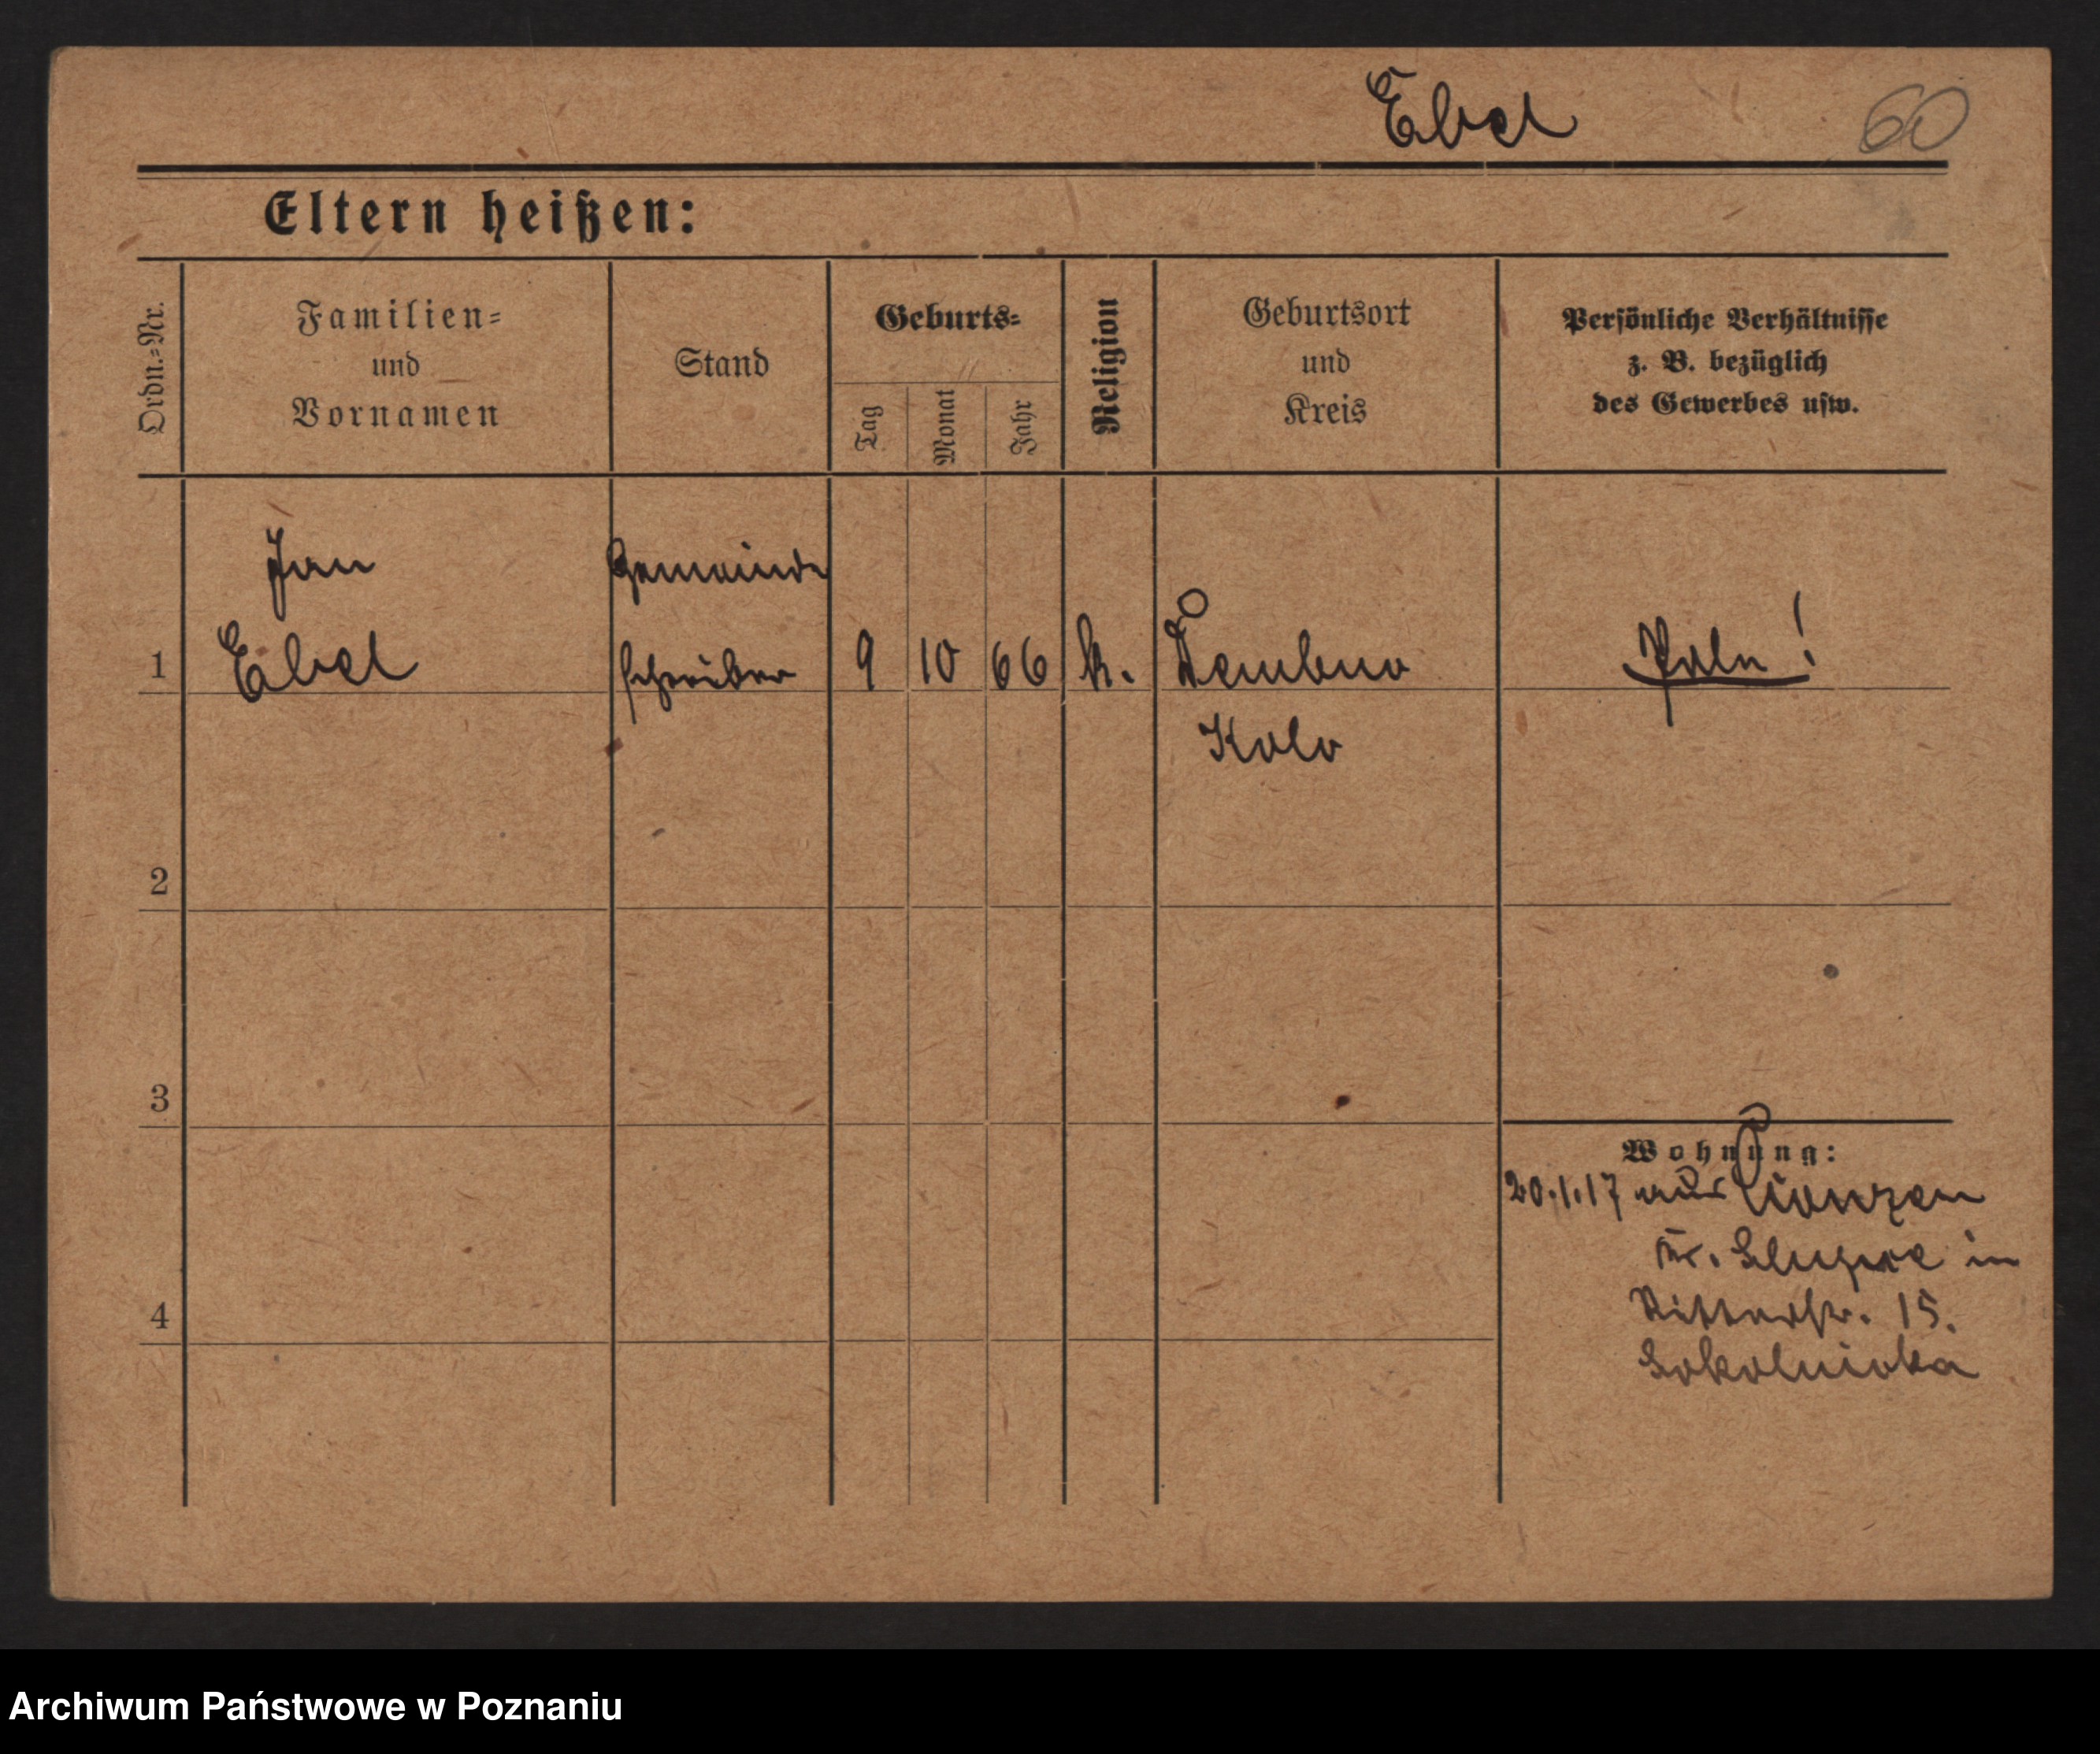 Ebel 60
Eltern heißen:
Ordn.=Nr.
Familien=
und
Vornamen
Stand
Geburts=
Tag
Monat
Jahr
Religion
Geburtsort
und
Kreis
Persönliche Verhältnisse
z. B. bezüglich
des Gewerbes usw.
Jan Gemeinde
1 Ebel schreiber 9 10 66 k. Dembno Pole!
Kolo
2
3
Wohnung:
20.1.17 aus
Kr. Slupca in
4 Ritterstr. 15.
Sokolnicka
Archiwum Państwowe w Poznaniu